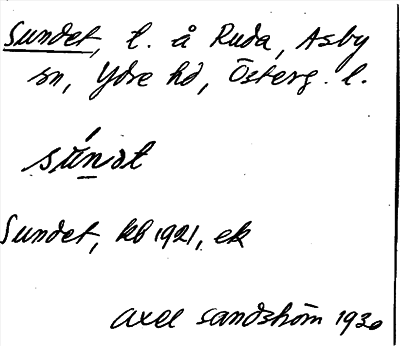 Sundet, t. å Ruda, Asby
sn, Ydre hd, Österg. l.
súnət
Sundet, kb 1921, ek
Axel Sandström 1930